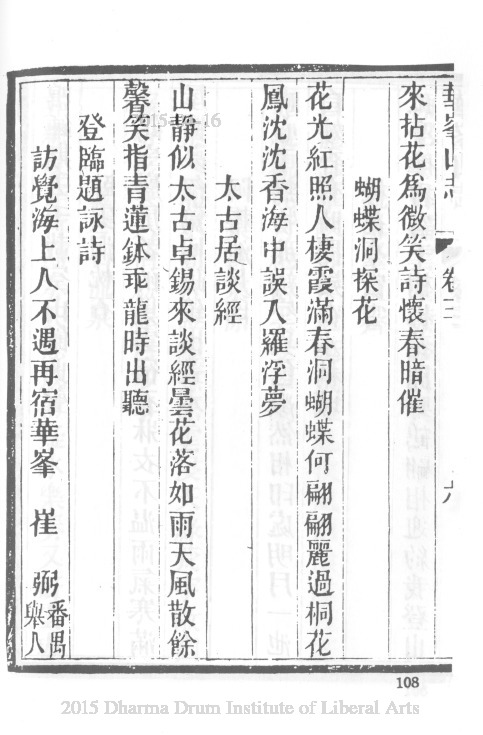 華峯山志 卷三 六
來拈花爲微笑詩懷春暗催
蝴蝶洞探花
花光紅照人棲霞滿春洞蝴蝶何翩翩麗過桐花
鳳沈沈香海中誤入羅浮夢
太古居談經
山靜似太古卓錫來談經曇花落如雨天風散餘
馨笑指青蓮鉢乖龍時出聽
登臨題詠詩
訪覺海上人不遇再宿華峯 崔 弼 番禺舉人
108
2015 Dharma Drum Institute of Liberal Arts